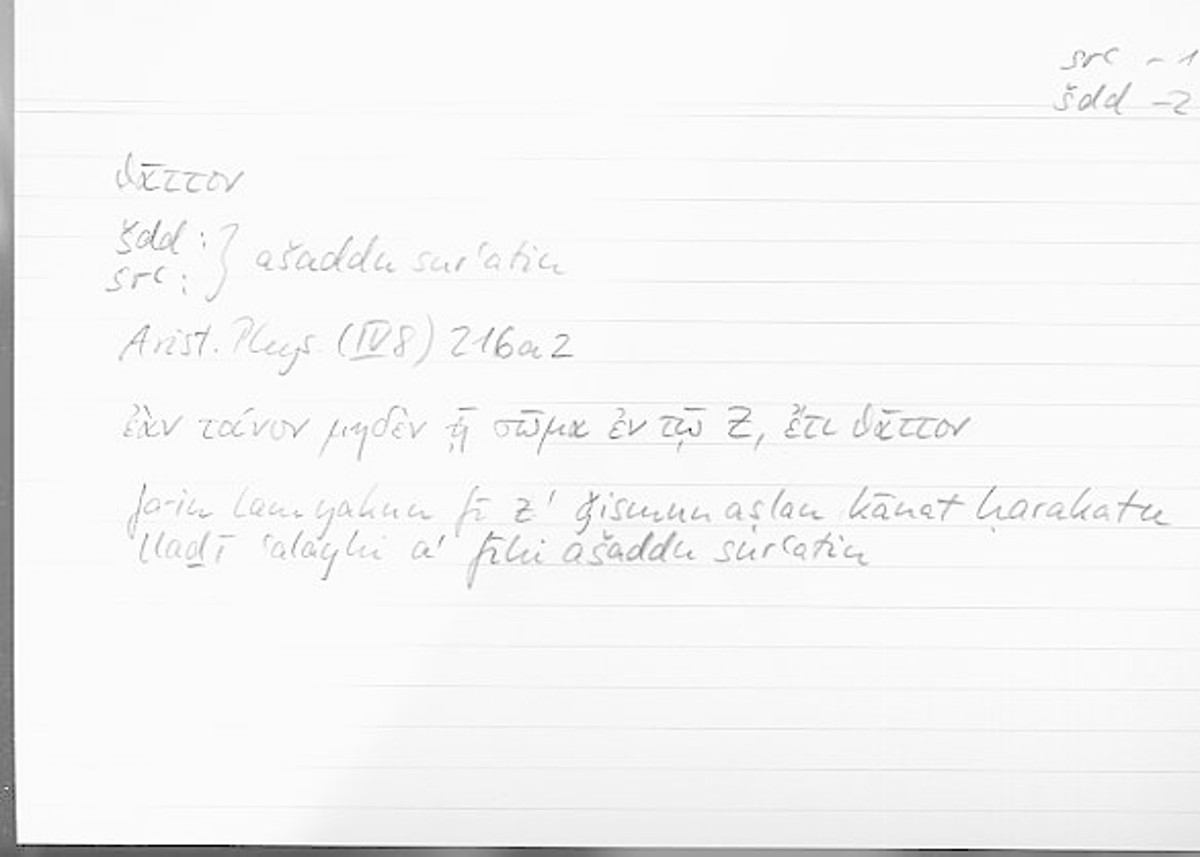 srʿ – 1
šdd – 2
θᾶττον
šdd :
srʿ : } ašaddu surʿatin
Arist. Phys. (IV 8) 216a2
ἐὰν τάνον μηδὲν ᾖ σῶμα ἐν τῷ Ζ, ἔτι θᾶττον
fa-in lam yakun fī z' ǧismun aṣlan kānat ḥarakatu
lladī ʿalayhi a' fīhi ašaddu surʿatin